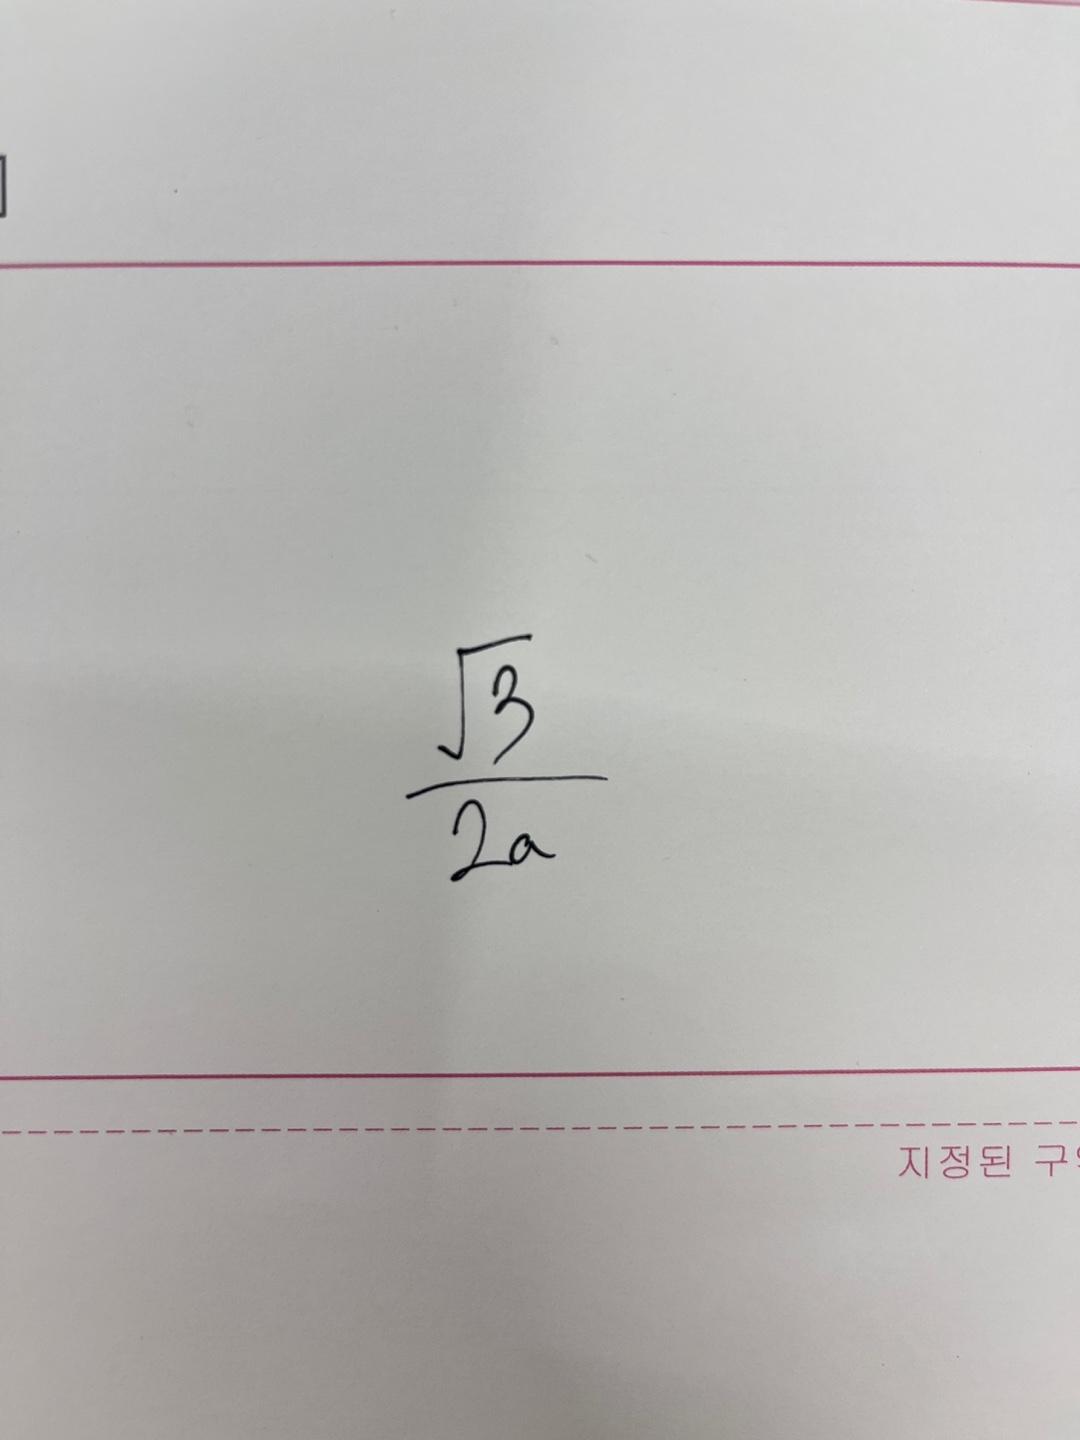 √3
2a
지정된